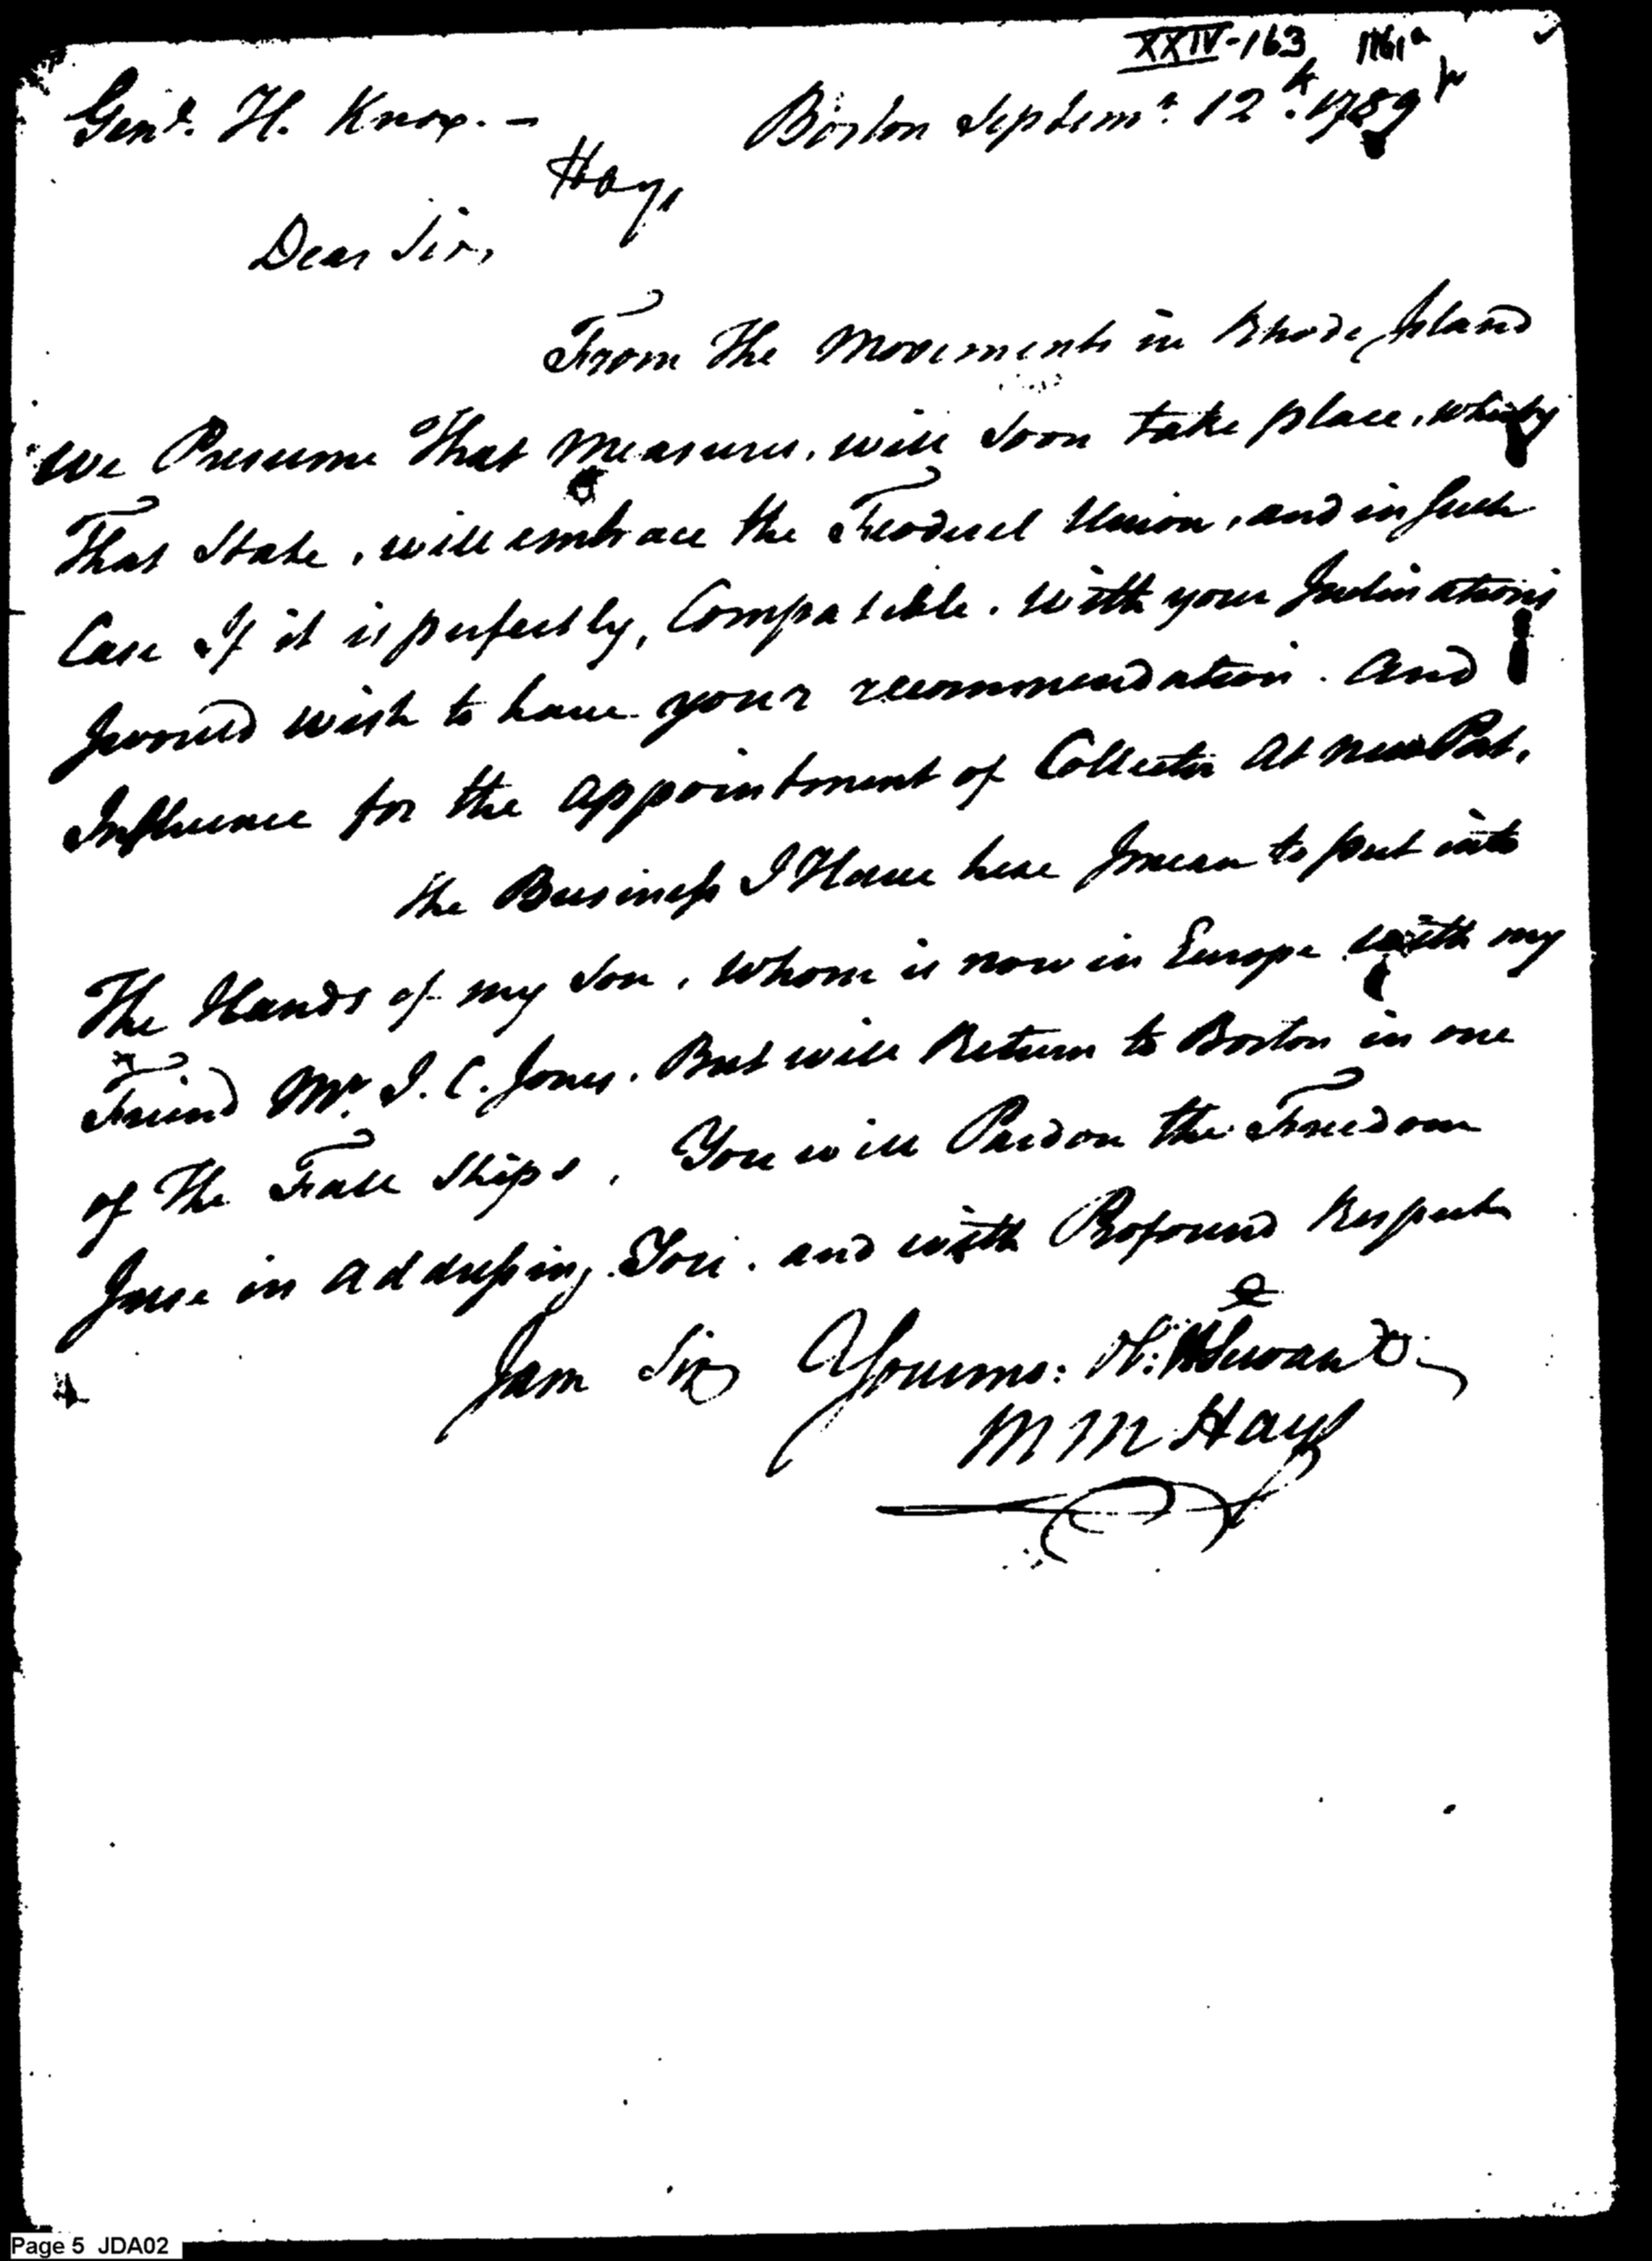 XXIV-163
Genl. H. Knox. - Boston Septemr. 12th. 1789
Hays
Dear Sir,
From The Movements in Rhode Island
We Presume That Measures, will soon take place, whereby
That State, will embrace the Feoderel Union, and in such
Case If it is perfectly, Compatible. with your Inclinations
I would wish to have your recommendation. And
Influence for the appointment of Collector At NewPort,
the Business I Have here I mean to put into
The Hands of my Son, Whom is now in Europe with my
Friend Mr. I. C. Jones. But will Return to Boston in one
of The Fall Ships, You will Pardon the Freedom
I use in addressing You. and with Profound Respects
I am Sir Yours mo: H:e Servant
M M Hays
Page 5 JDA02